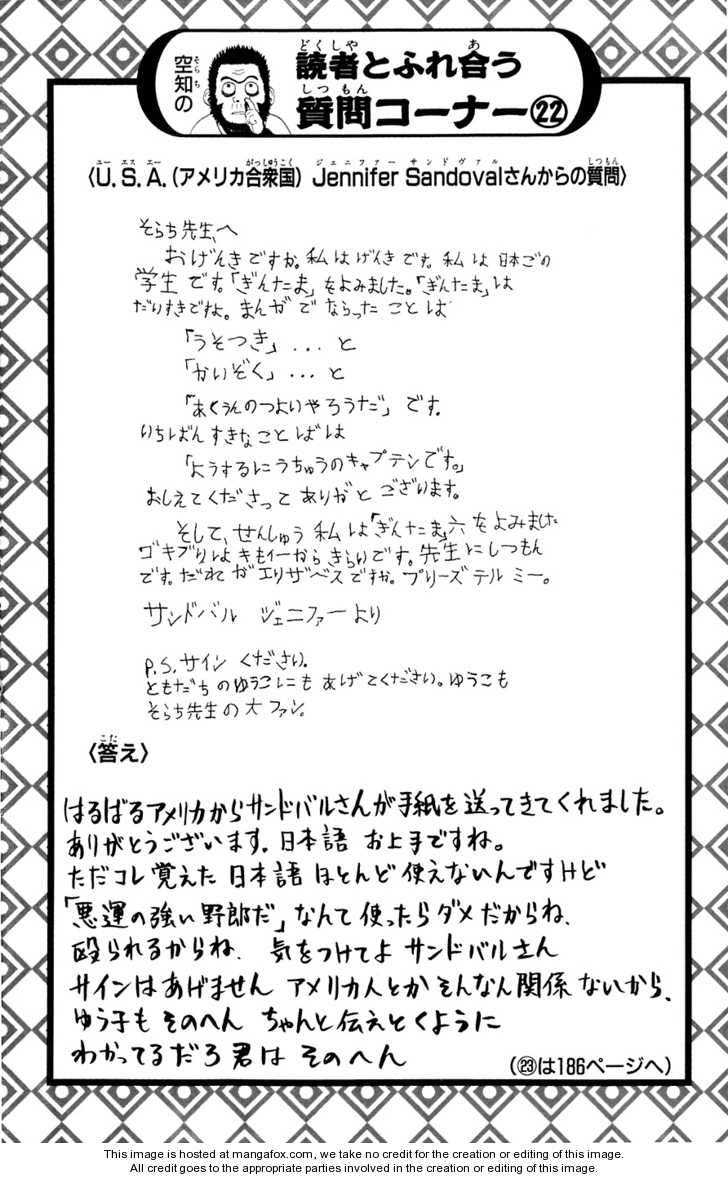 空知の
読者とふれ合う
質問コーナー㉒
〈U.S.A.(アメリカ合衆国) Jennifer Sandovalさんからの質問〉
そらち先生、へ
おげんきですか。私はげんきです。私は日本ごの
学生です。「ぎんたま」をよみました。「ぎんたま」は
だいすきですよ。まんがでならったことは
「うそつき」...と
「かいぞく」...と
「あくうんのつよいやろうだ」です。
いちばんすきなことばは
「ようするにうちゅうのキャプテンです。」
おしえてくださってありがとございます。
そして、せんしゅう私は「ぎんたま」六をよみました
ゴキブりはきもイーからきらいです。先生にしつもん
です。だれがエリザベスですか。プリーズテルミー。
サンドバル ジェニファーより
P.S.サインください。
ともだちのゆうこにもあげてください。ゆうこも
そらち先生の大ファン。
〈答え〉
はるばるアメリカからサンドバルさんが手紙を送ってきてくれました。
ありがとうございます。日本語お上手ですね。
ただコレ覚えた日本語ほとんど使えないんですけど
「悪運の強い野郎だ」なんて使ったらダメだからね、
殴られるからね、気をつけてよサンドバルさん
サインはあげませんアメリカ人とかそんなん関係ないから、
ゆう子もそのへんちゃんと伝えとくように
わかってるだろ君はそのへん
(㉓は186ページへ)
This image is hosted at mangafox.com, we take no credit for the creation or editing of this image.
All credit goes to the appropriate parties involved in the creation or editing of this image.